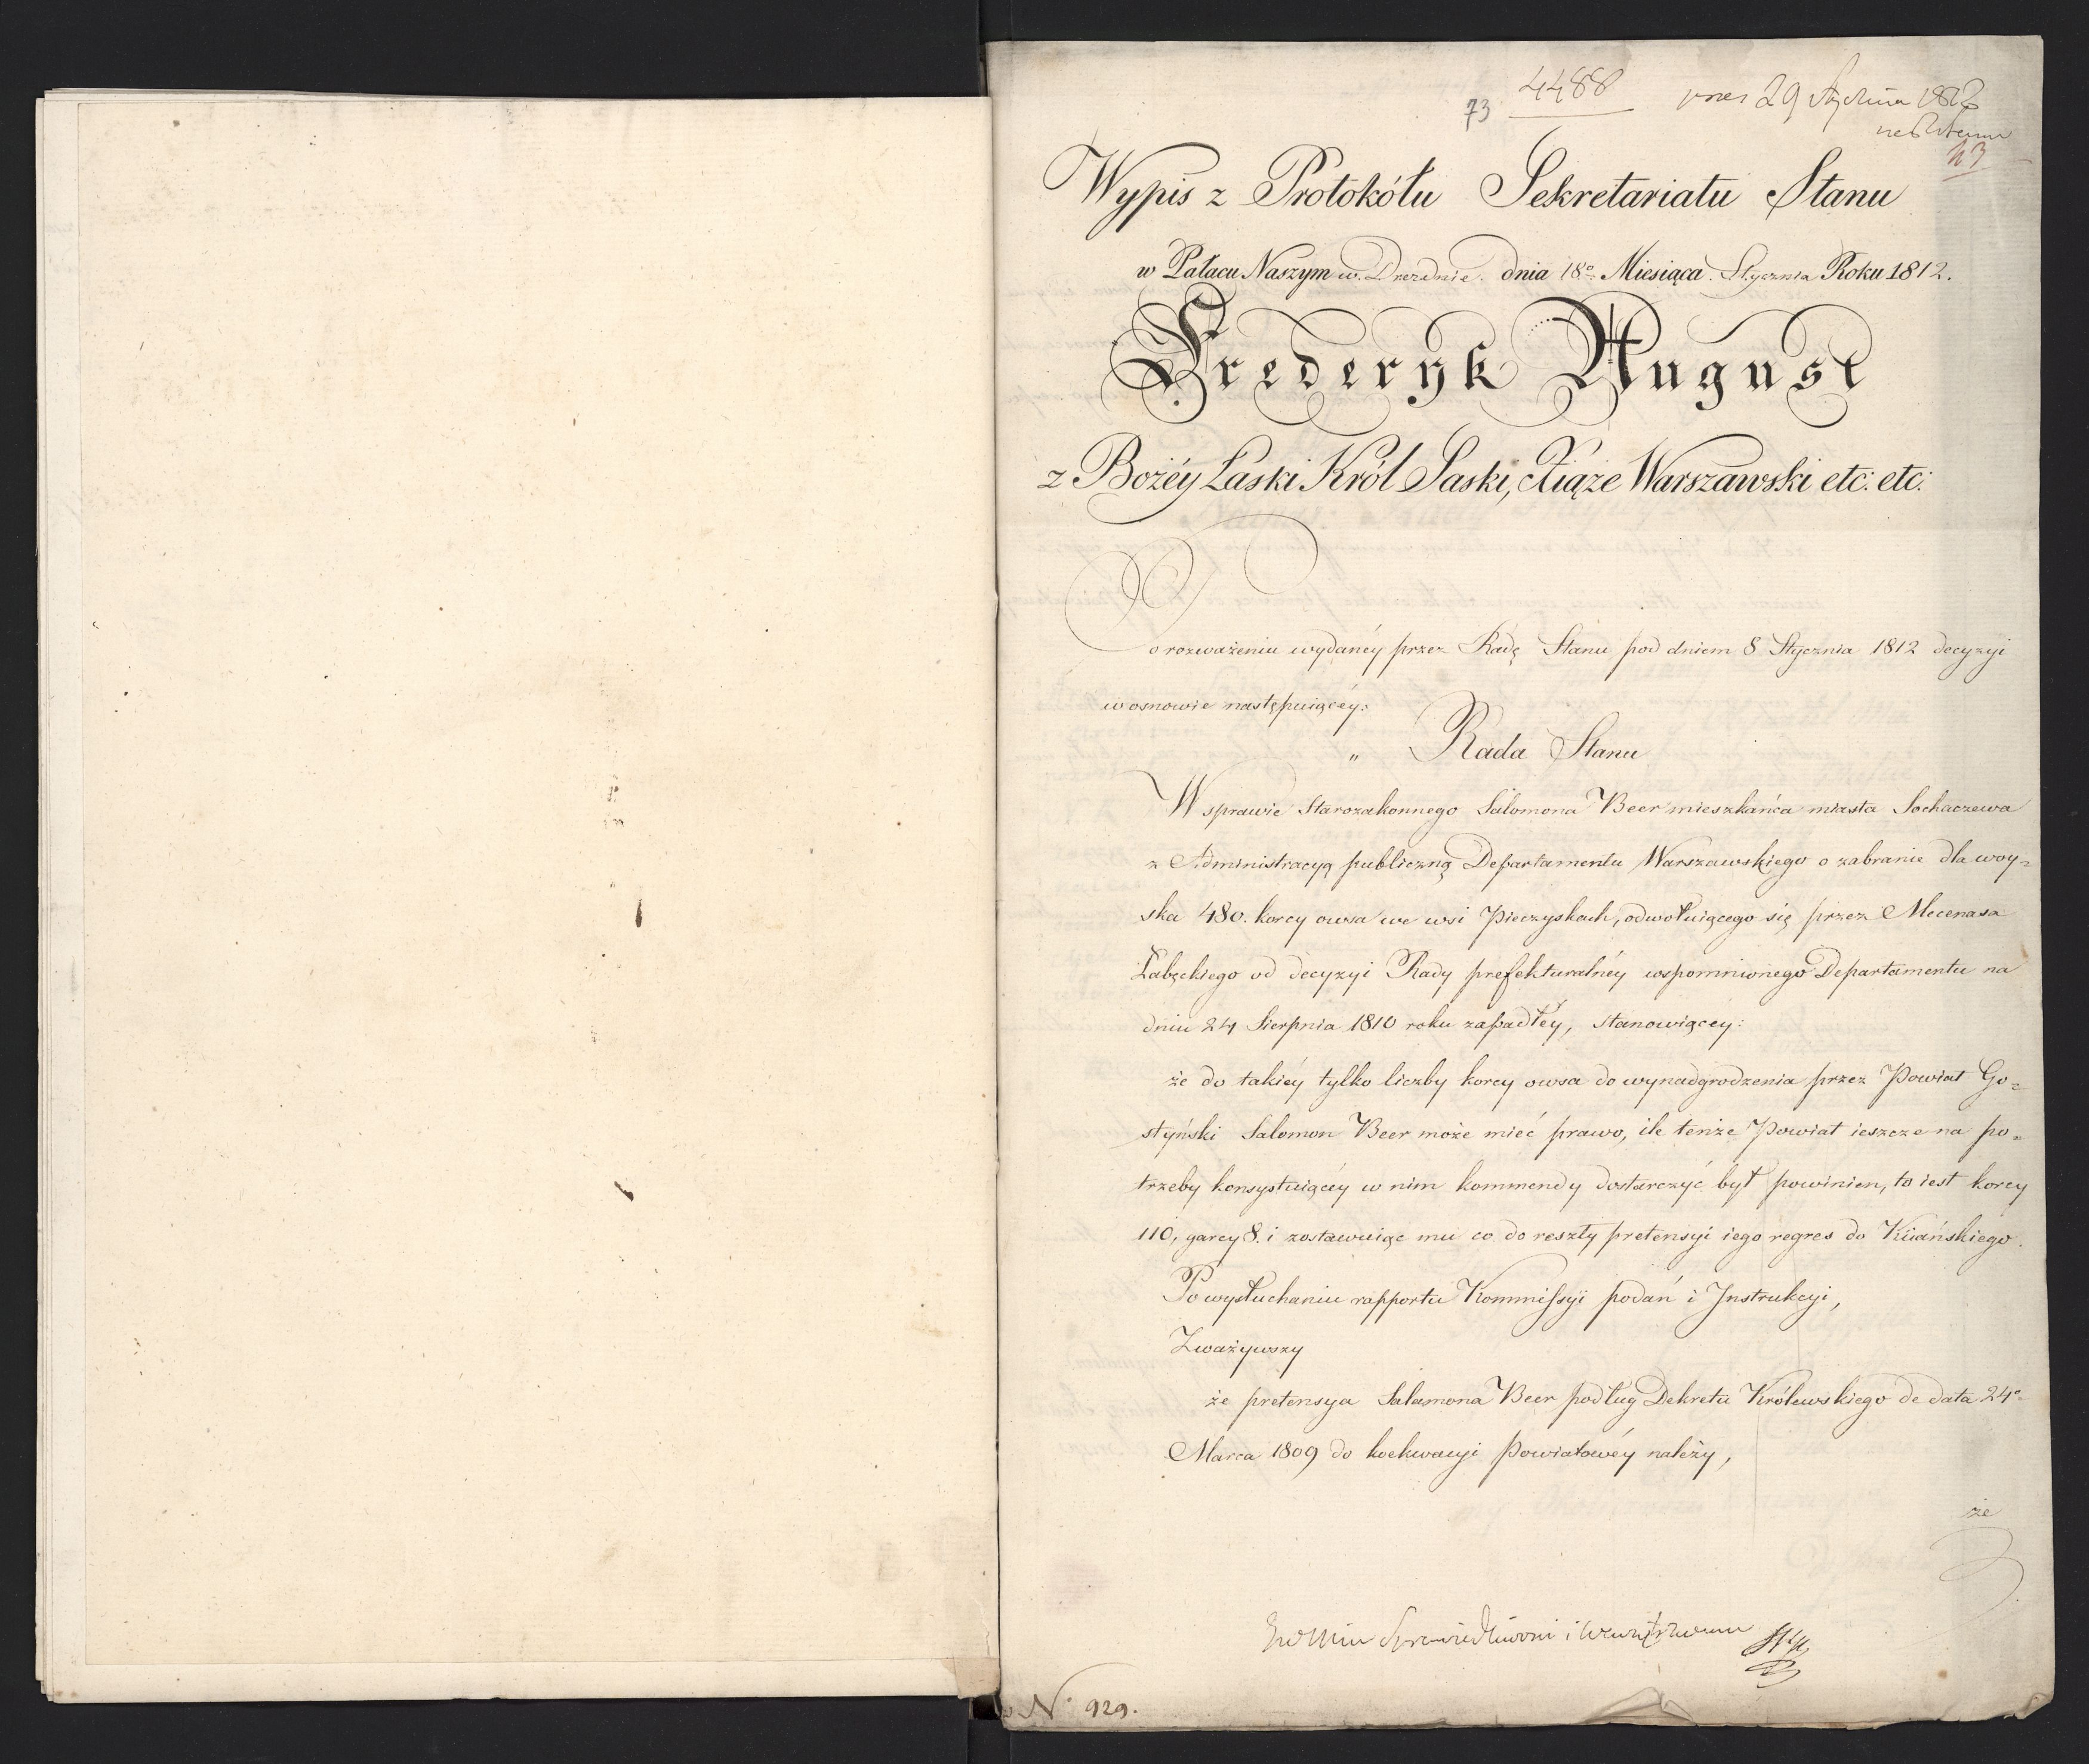 73 4488 29 Stycznia 1812
Wypis z Protokółu Sekretariatu Stanu
w Pałacu Naszym w Dreznie dnia 18º Miesiąca Stycznia Roku 1812.
Fryderyk August
z Bożéy Łaski Król Saski, Xiąże Warszawski etc: etc:
Po rozważeniu wydanéy przez Radę Stanu pod dniem 8 Stycznia 1812 decyzyi
w osnowie następuiącéy:
„ Rada Stanu
W sprawie Starozakonnego Salomona Beer mieszkańca miasta Sochaczewa
z Administracyą publiczną Departamentu Warszawskiego o zabranie dla woy=
ska 480. korcy owsa we wsi Pieczyskach, odwołuiącego się przez Mecenasa
Łabęckiego od decyzyi Rady prefekturalnéy wspomnionego Departamentu na
dniu 24 Sierpnia 1810 roku zapadłéy, stanowiącéy:
że do takiéy tylko liczby korcy owsa do wynadgrodzenia przez Powiat Go=
styński Salomon Beer może mieć prawo, ile tenże Powiat ieszcze na po=
trzeby konsystuiącéy w nim kommendy dostarczyć był powinien, to iest korcy
110, garcy 8. i zostawuiąc mu co do reszty pretensyi iego regres do Kiiańskiego.
Po wysłuchaniu rapportu Kommissyi podań i Instrukcyi,
Zważywszy
że pretensya Salamona Beer podług Dekretu Królewskiego de data 24º
Marca 1809 do koekwacyi Powiatowéy należy,
że
Sprawiedliwości i
Nº 929.